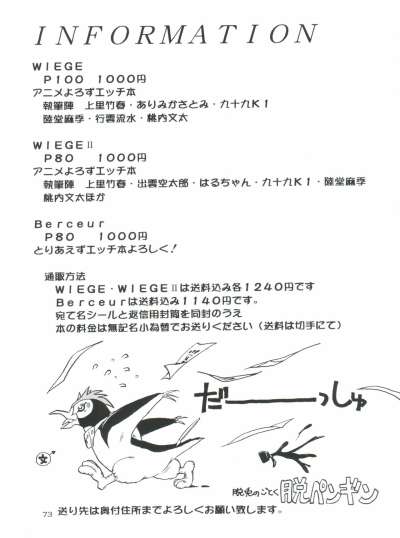 INFORMATION
WIEGE
P100 1000円
アニメよろずエッチ本
執筆陣 上里竹春・ありみかさとみ・九十九K1
陸堂麻季・行雲流水・桃内文太
WIEGEⅡ
P80 1000円
アニメよろずエッチ本
執筆陣 上里竹春・出雲空太郎・はるちゃん・九十九K1・陸堂麻季
桃内文太ほか
Berceur
P80 1000円
とりあえずエッチ本よろしく!
通販方法
WIEGE・WIEGEⅡは送料込み各1240円です
Berceurは送料込み1140円です。
宛て名シールと返信用封筒を同封のうえ
本の料金は無記名小為替でお送りください(送料は切手にて)
だーーーっしゅ
脱兎のごとく 脱ペンギン
73 送り先は奥付住所までよろしくお願い致します。